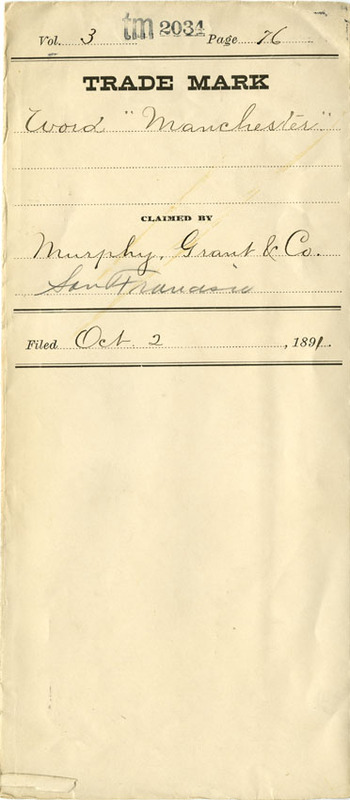 Vol. 3 tm 2034 Page 76
TRADE MARK
Word "Manchester"
CLAIMED BY
Murphy, Grant & Co.
San Francisco
Filed Oct. 2, 1891.